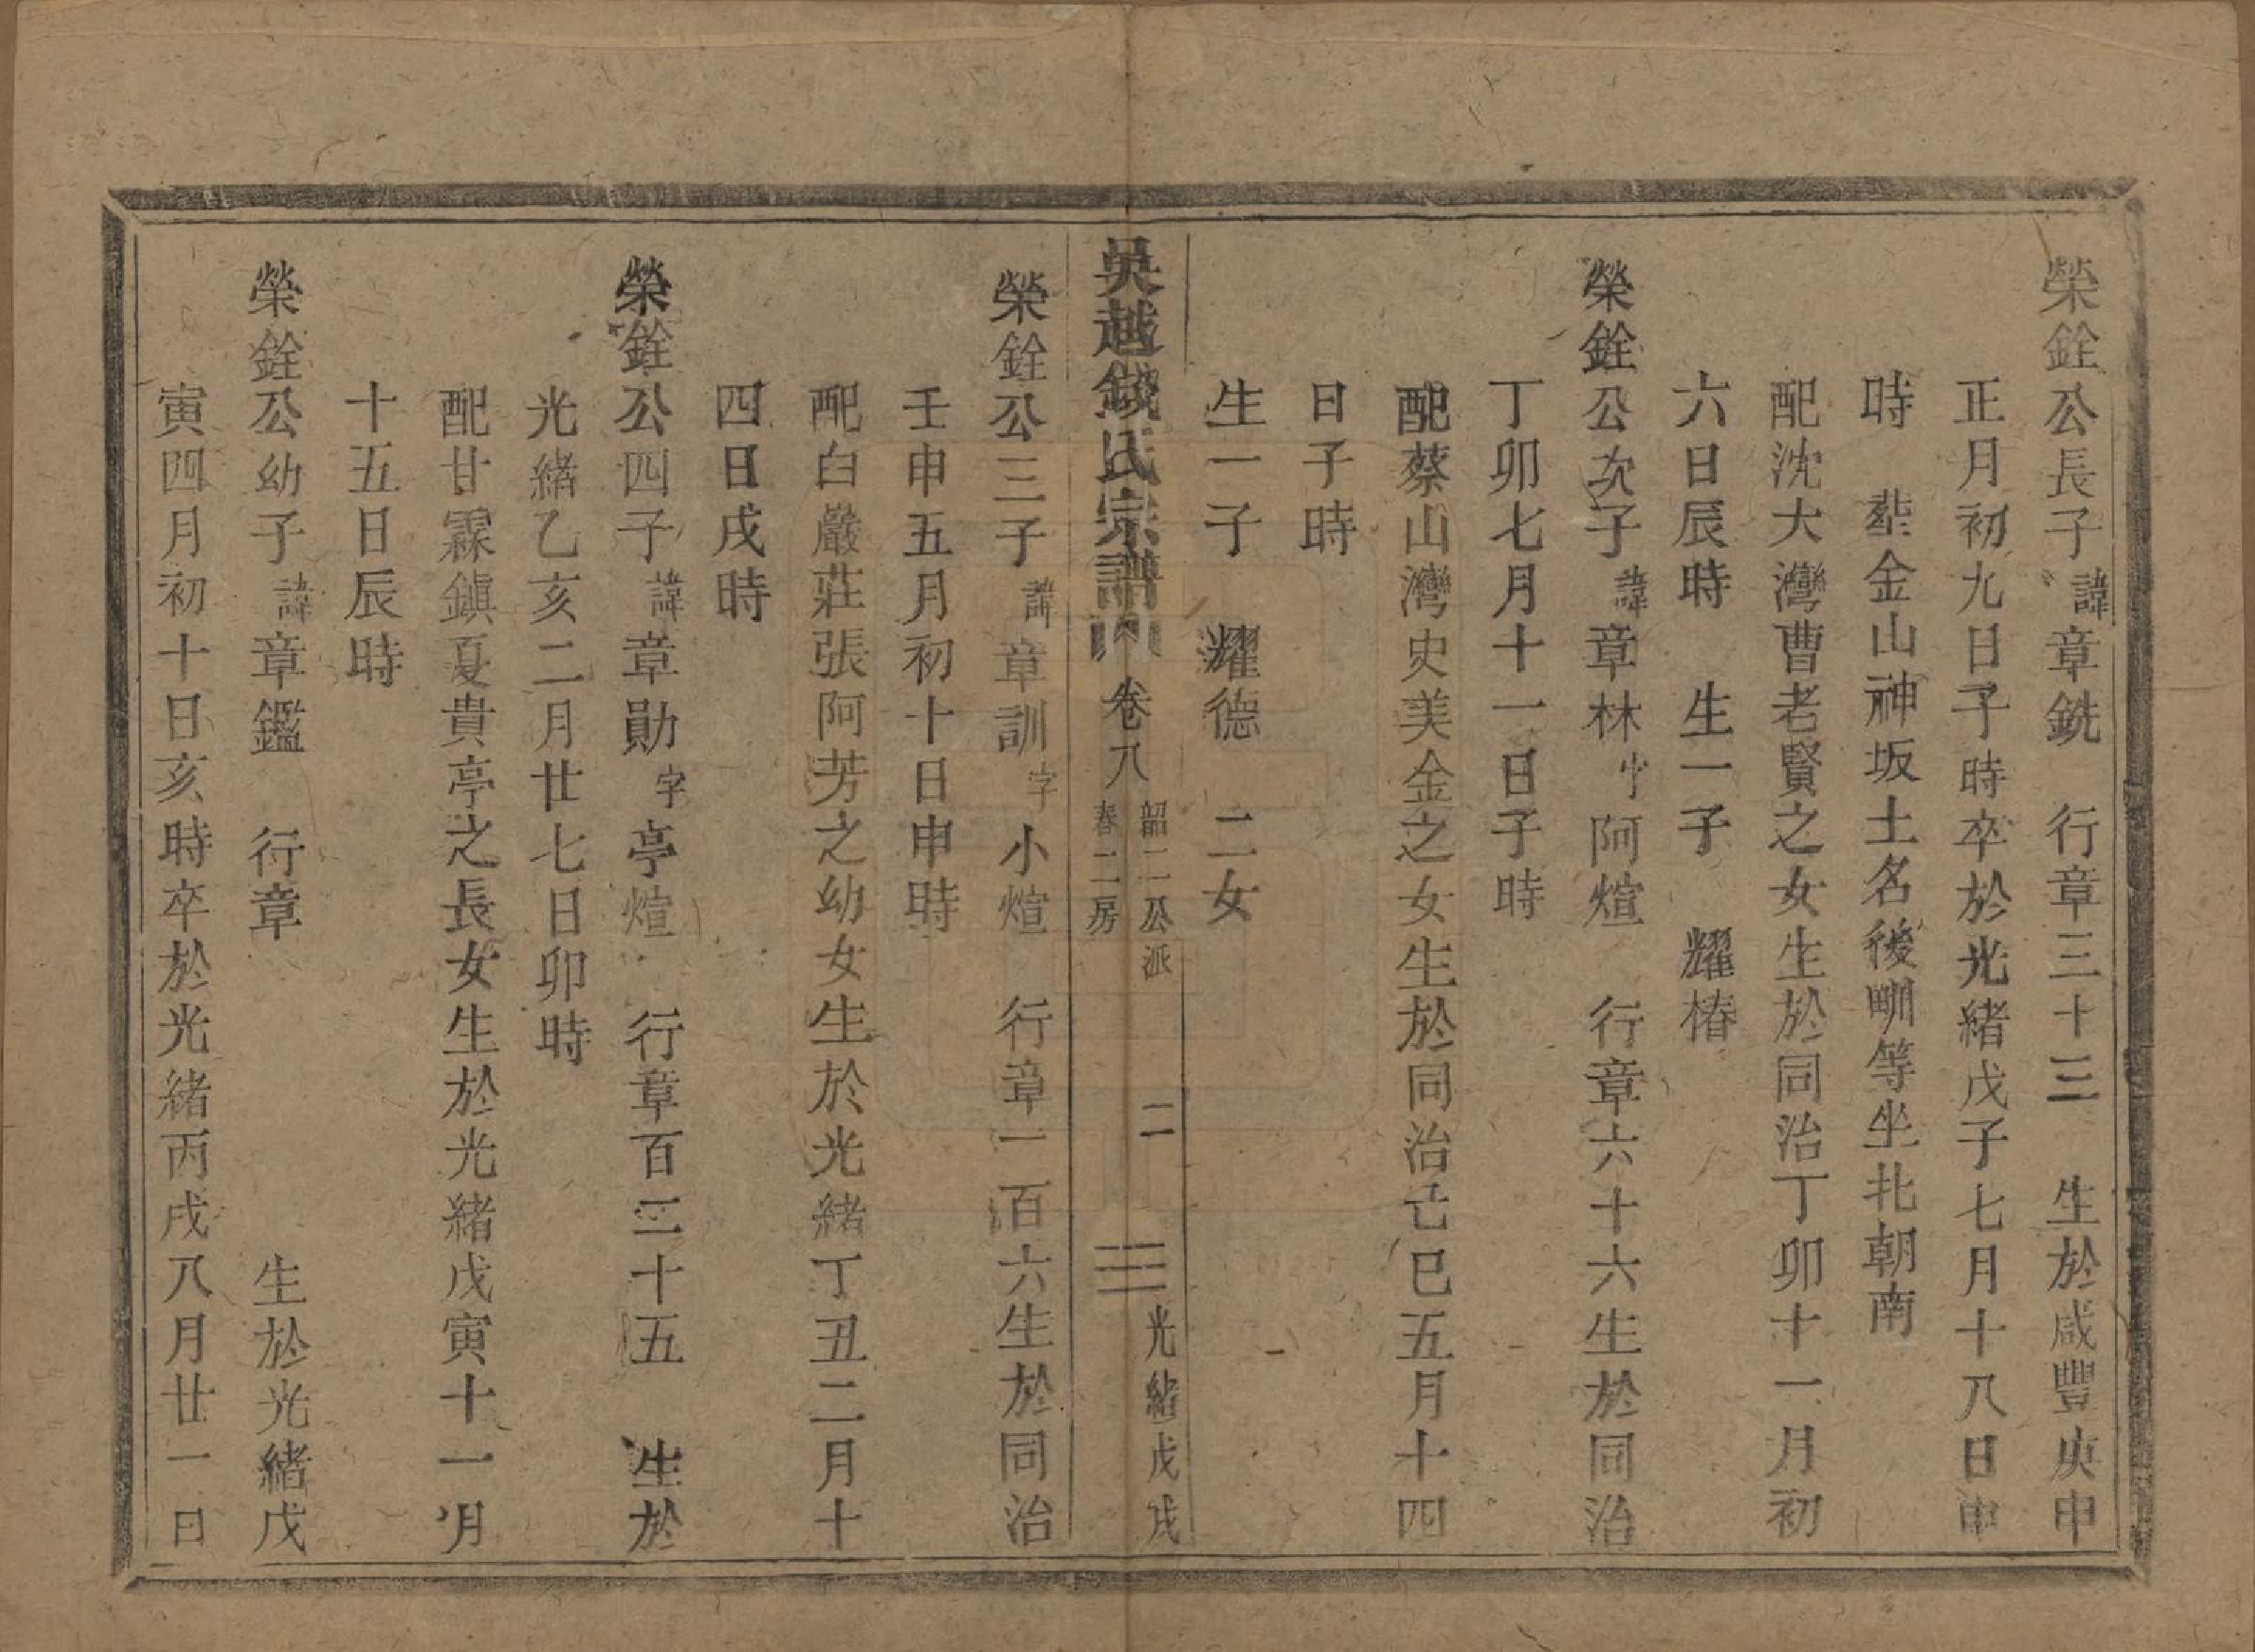 榮銓公長子諱章銑　行章三十三　生於咸豐庚申
正月初九日子時卒於光緒戊子七月十八日申
時　塟金山神坂土名後畈等坐北朝南
配沈大灣曹老賢之女生於同治丁卯十一月初
六日辰時　生一子　耀椿
榮銓公次子諱章林小字阿煊　行章六十六生於同治
丁卯七月十一日子時
配蔡山灣史美金之女生於同治己巳五月十四
日子時
生一子　耀德　二女
吳越錢氏宗譜　卷八　韶二公派　春二房　二　光緒戊戌
榮銓公三子諱章訓字小煊　行章一百六生於同治
壬申五月初十日申時
配白嚴莊張阿芳之幼女生於光緒丁丑二月十
四日戌時
榮銓公四子諱章勛字亭煊　行章百二十五　生於
光緒乙亥二月廿七日卯時
配甘霖鎮夏貴亭之長女生於光緒戊寅十一月
十五日辰時
榮銓公幼子諱章鑑　行章　生於光緒戊
寅四月初十日亥時卒於光緒丙戌八月廿一日